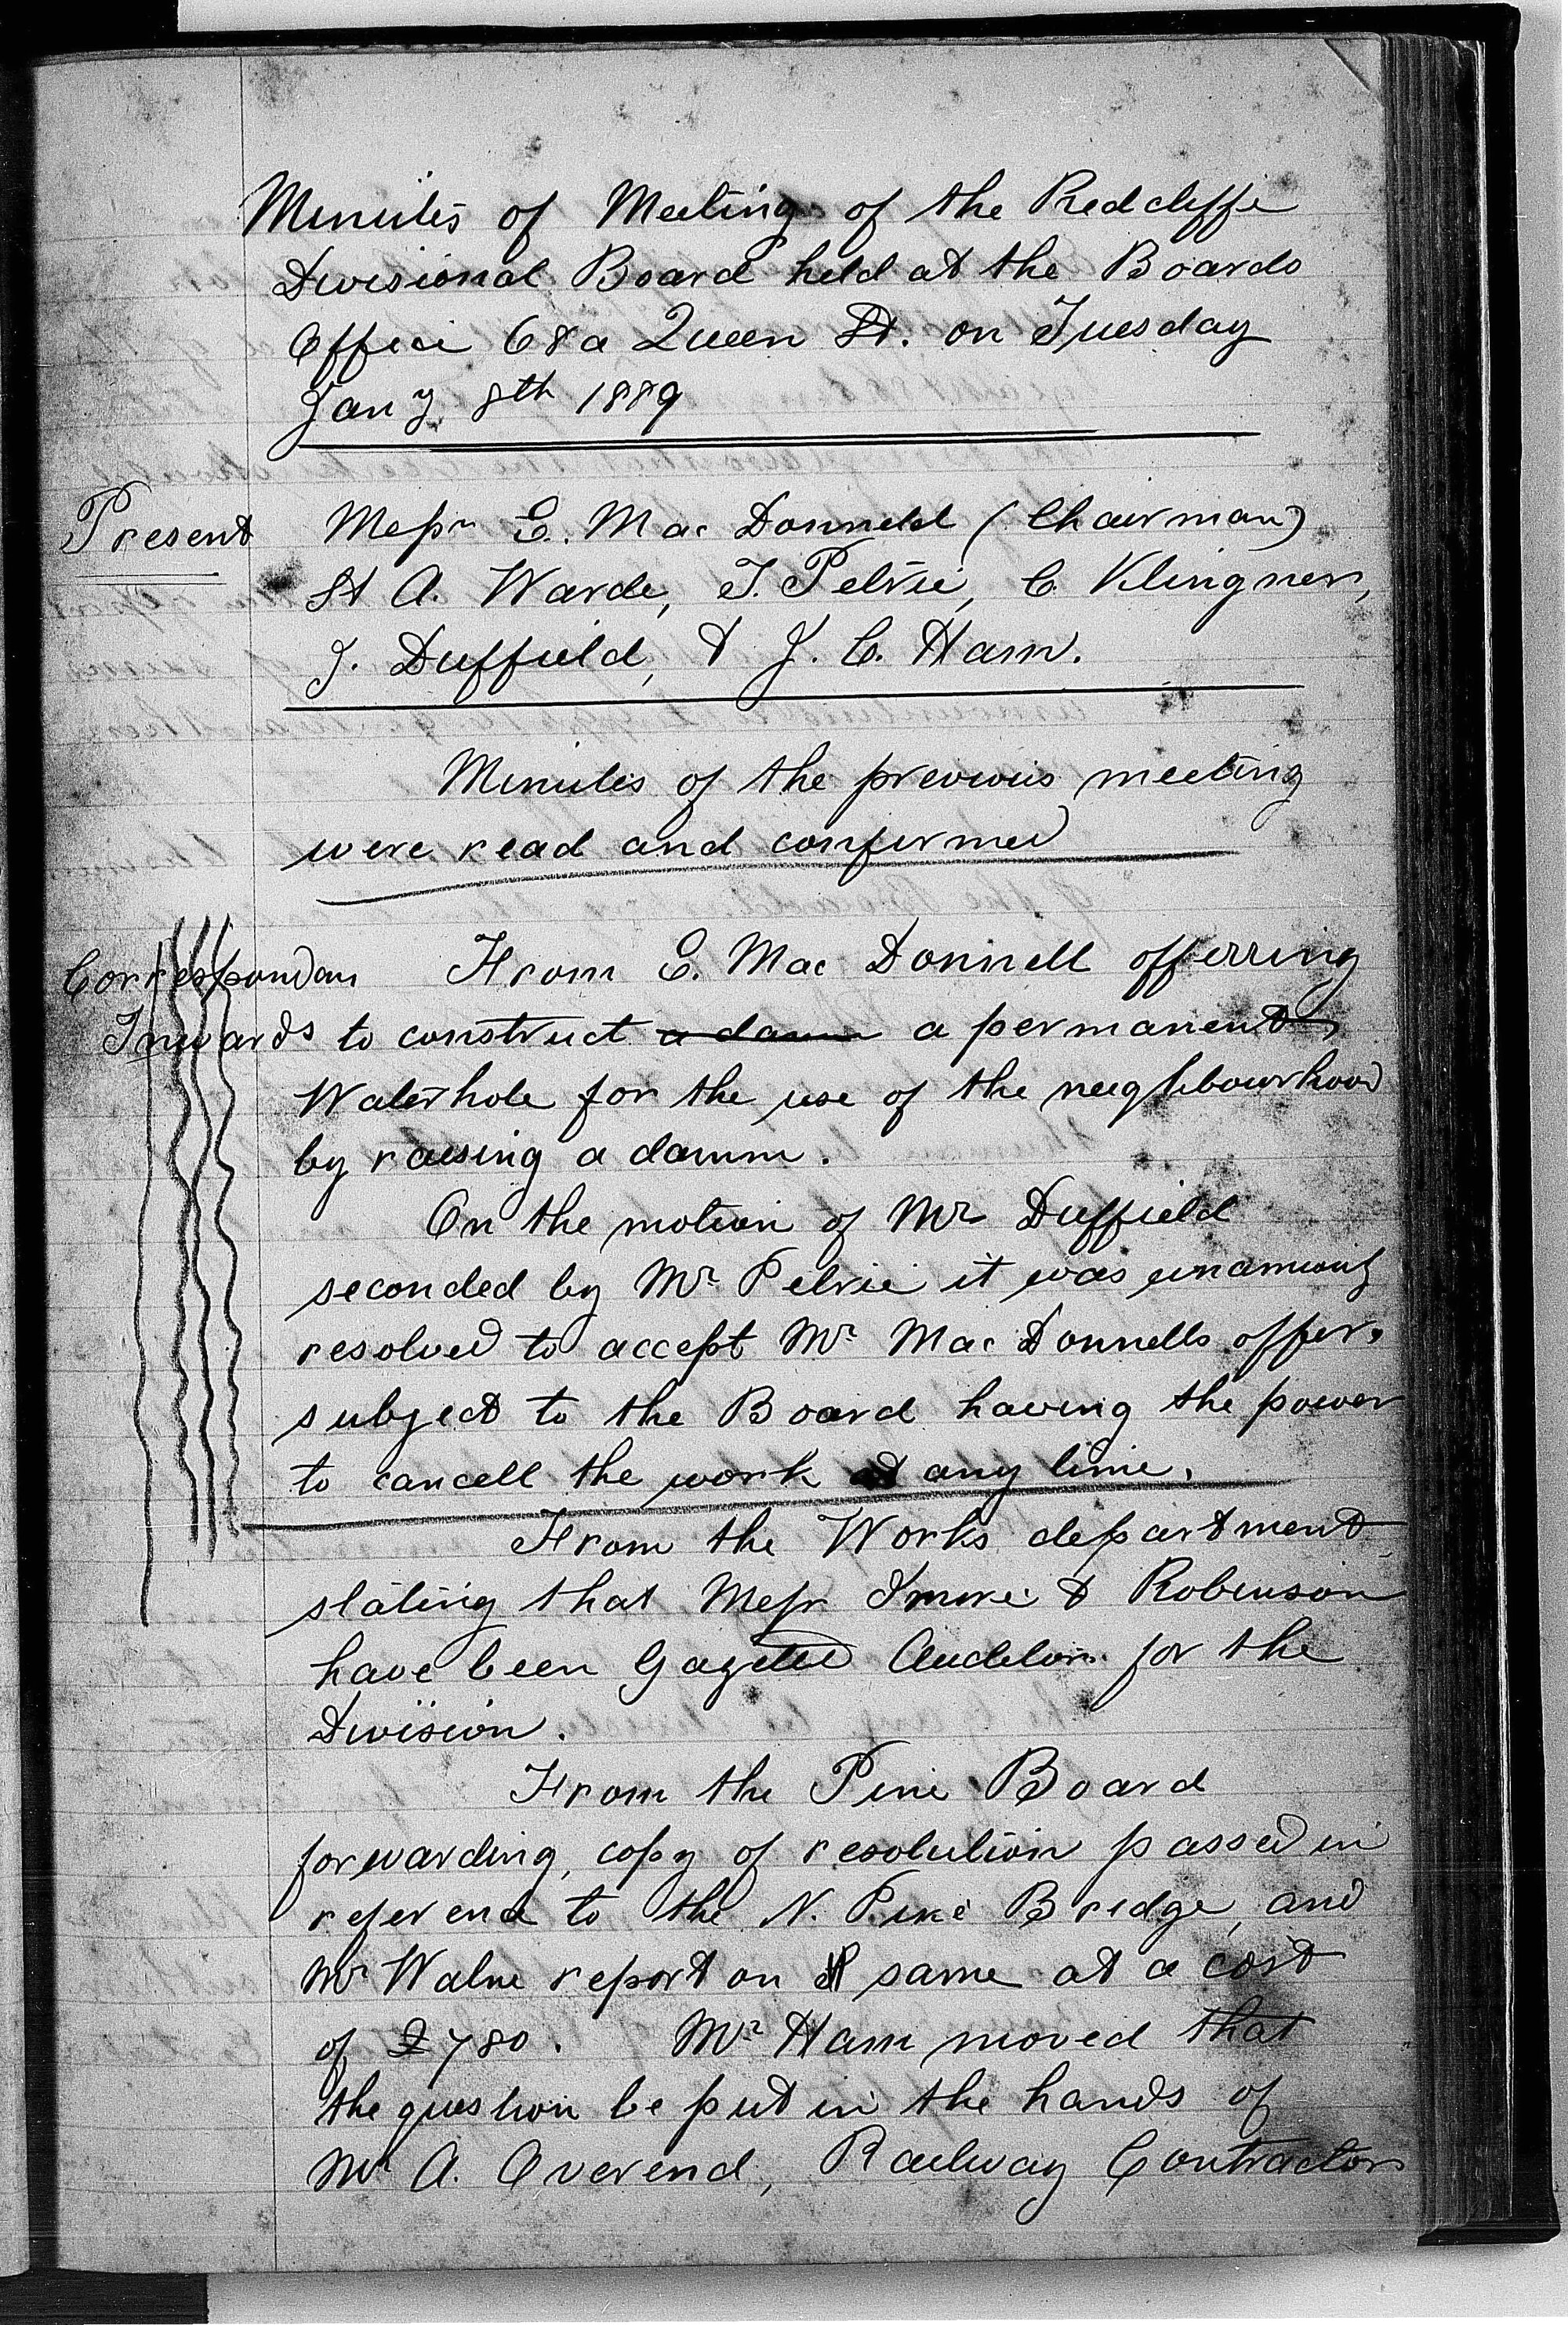 Minutes of Meeting of the Redcliffe
Divisional Board held at the Boards
Office 68a Queen St. on Tuesday
Jany 8th 1889
Present Messrs E. Mac Donnell (Chairman)
St A. Warde, T. Petrie, C. Klingner,
J. Duffield, & J. C. Ham.
Minutes of the previous meeting
were read and confirmed
Correspondence From E. Mac Donnell offerring
Inwards to construct a damm a permanent
Waterhole for the use of the neighbourhood
by raising a damm.
On the motion of Mr Duffield
seconded by Mr Petrie it was unanimously
resolved to accept Mr Mac Donnells offer.
subject to the Board having the power
to cancell the work at any time.
From the Works department
stating that Messrs & Robinson
have been Gazetted Auditors for the
Division.
From the Pine Board
forwarding, copy of resolution passed in
reference to the N. Pine Bridge, and
Mr report on same at a cost
of £780. Mr Ham moved that
the question be put in the hands of
Mr A. Overend, Railway Contractor